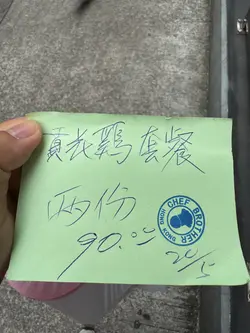 貢丸鷄套餐
兩份
90.00
CHEF BROTHER
HONG KONG
20/5